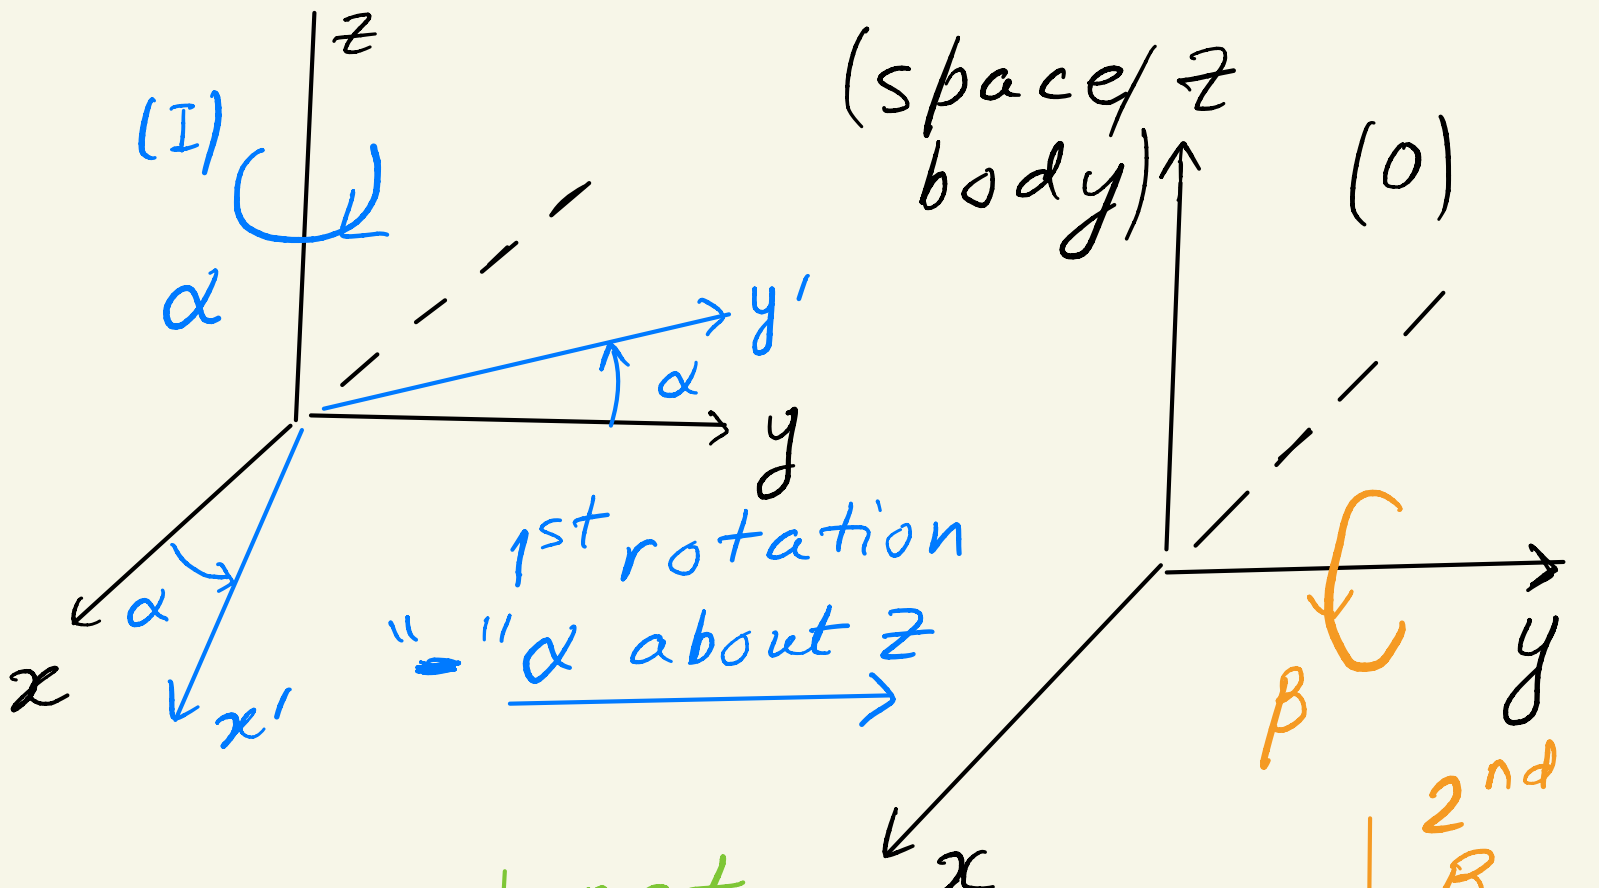 z
(I)
α
y'
α
y
α
x
x'
1st rotation
"-" α about z
(space/
body)
z
(0)
y
β
x
2nd
β